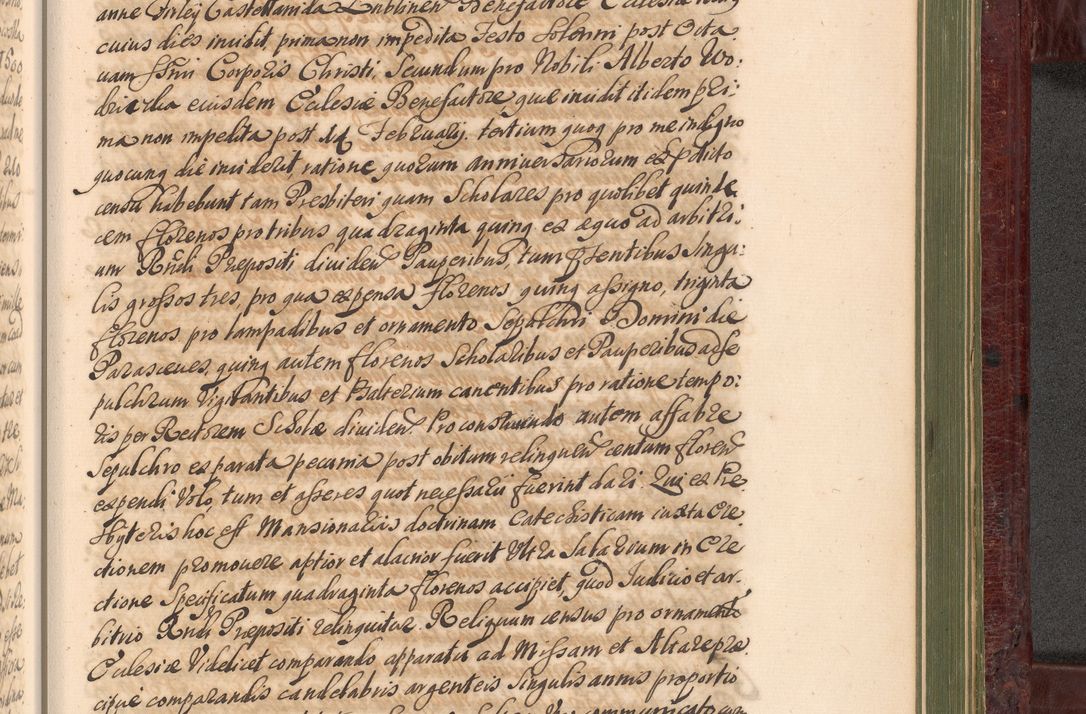 anne Firleÿ Castellanida Lublinen Benefactore Ecclesiæ
cuius dies incidit, prima non impedita Festo Solenni post Octa
uam ssmi Corporis Christi, Secundum pro Nobili Alberto Wo:
eiusdem Eclesiæ Benefactore quæ incidit itidem pri:
ma non impedita post 14 Februarÿ. tertium quoq pro me indigno
quocunq die inciderit, ratione quorum anniuersariorum expedito
censu habebunt tam Presbiteri quam Scholares pro quolibet quinde
cem florenos pro tribus quadraginta quinq ex æquo ad arbitri:
um Rndi Præpositi dividen Pauperibus, tum psentibus singu:
lis grossos tres, pro qua expensa florenos quinq assigno, triginta
florenos pro lampadibus et ornamento Sepulchri Domini die
Parasceues, quinq autem florenos Scholaribus et Pauperibus ad se
pulchrum Vigilantibus et Psalterium canentibus pro ratione tempo:
ris per Rectorem Scholæ dividen. Pro construendo autem affabre
Sepulchro ex parata pecunia post obitum relinquen centum floren
expendi Volo, tum et asseres quot necessarii fuerint dari. Qui ex Pre
sbyteris hoc est Mansionariis doctrinam Catechisticam iuxta Ere
ctionem promovere aptior et alacrior fuerit Ultra Salarium in Ere
ctione Specificatum quadraginta florenos accipiet, quod Iudicio et ar:
bitrio Rndi Præpositi relinquitur. Reliquum census pro ornamento
Eclesiæ Videlicet comparando apparatu ad Missam et Altare præ
cipue comparandis candelabris argenteis Singulis annis proportio
communicato cum